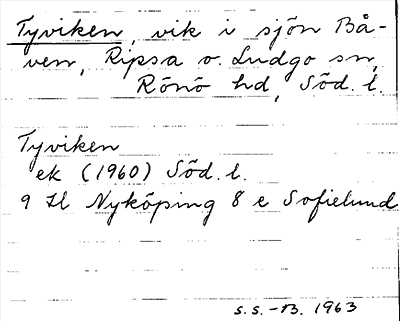 Tyviken, vik i sjön Bå-
ven, Ripsa o. Ludgo sn,
Rönö hd, Söd. l.
Tyviken
ek (1960) Söd. l.
9 H Nyköping 8 e Sofielund
S.S.-B. 1963